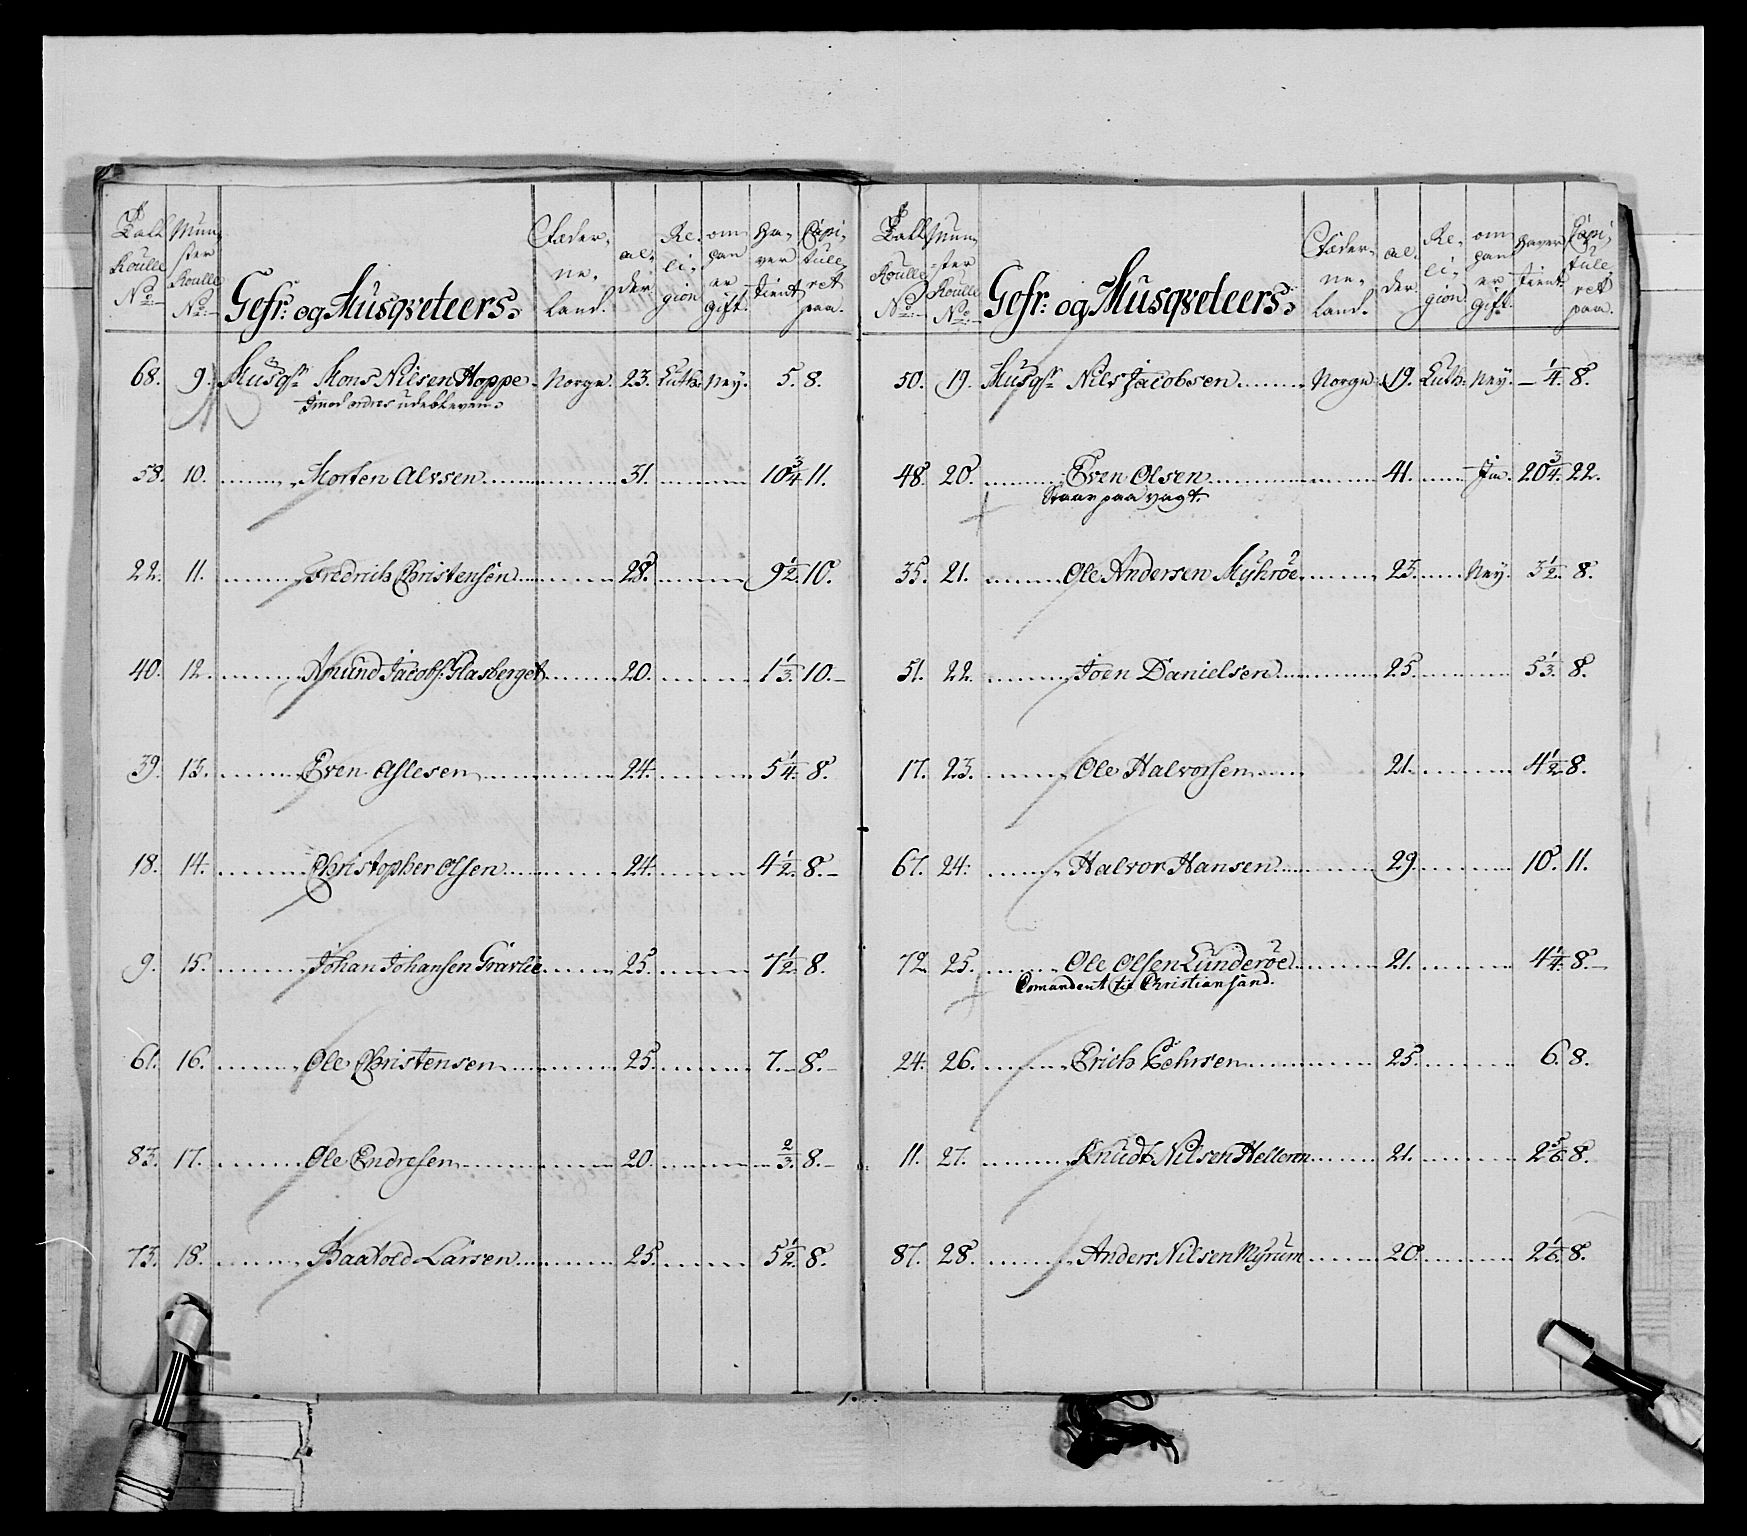 Rull Roulle No. Mun- ster Roulle No. Gefr: og Musqveteers: Fæder- ne- land. al- der Re- li- gion om han er gift. ha- ver tient Capi- tule- ret paa.
68. 9. Musqr Mons Nilsen Hoppe. Norge. 23. Luth: Ney. 5. 8.
Imod ordres udebleven.
58. 10. Morten Alvsen 31. 10 3/4 11.
22. 11. Fredrich Christensen 28. 9 1/2 10.
40. 12. Amund Jacobs: Flasberget 20. 1 1/3. 10.
39. 13. Even Aslesen 24. 5 1/4. 8.
18. 14. Christopher Olsen 24. 4 1/2. 8.
9. 15. Johan Johansen Gravlie 25. 7 1/2. 8.
61. 16. Ole Christensen 25. 7. 8.
83. 17. Ole Endresen 20. 2/3. 8.
73. 18. Baatvold Larsen 25. 5 1/2. 8.
Rull Roulle No. Mun- ster Roulle No. Gefr: og Musqveteers: Fæder- ne- land. al- der Re- li- gion om han er gift. haver tient Capi- tule- ret paa.
50. 19. Musqr Nils Jacobsen Norge. 19. Luth: Ney. 1/4. 8.
48. 20. Even Olsen 41. Ja. 20 3/4. 22.
Staar paa vagt.
35. 21. Ole Andersen Myhröe 23. Ney. 3 1/2. 8.
51. 22. Joen Danielsen 25. 5 1/3. 8.
17. 23. Ole Halvorsen 21. 4 1/2 8.
67. 24. Halvor Hansen 29. 10. 11.
72. 25. Ole Olsen Lunderöe 21. 4 1/4. 8.
Comandert til Christiansand.
24. 26. Erich Pehrsen 25. 6. 8.
11. 27. Knudt Nilsen Helleren 21. 2 5/6. 8.
87. 28. Anders Nilsen Myrum 20. 2 1/6. 8.